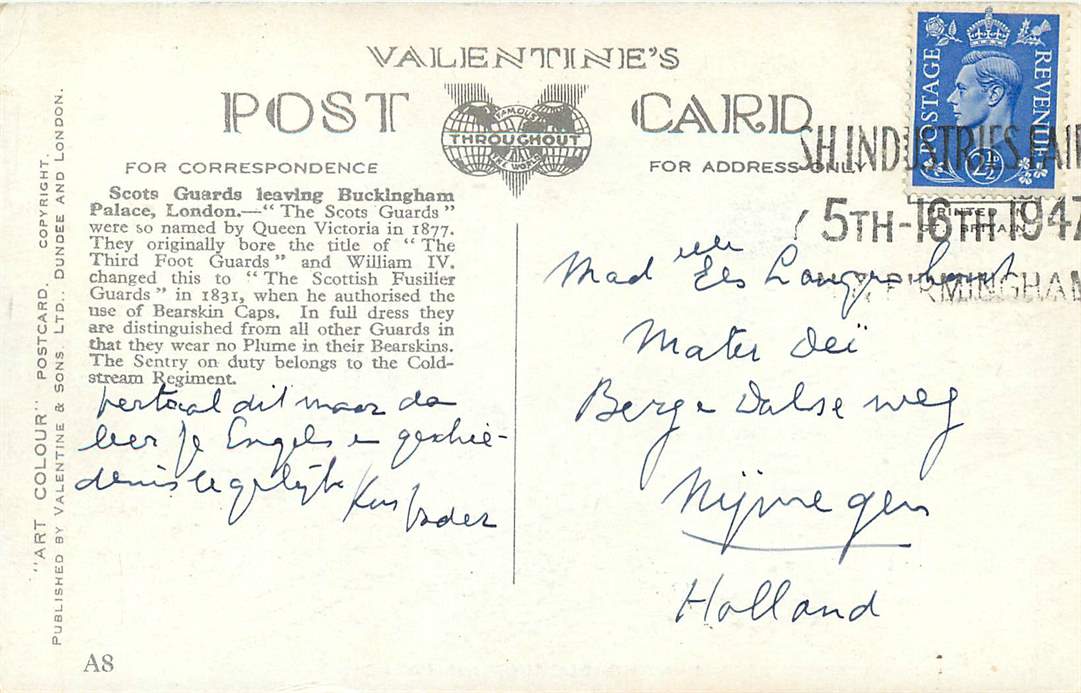 VALENTINE'S
POST CARD
FAMOUS
THROUGHOUT
THE WORLD
FOR CORRESPONDENCE
FOR ADDRESS ONLY
Scots Guards leaving Buckingham
Palace, London.—“The Scots Guards”
were so named by Queen Victoria in 1877.
They originally bore the title of “The
Third Foot Guards” and William IV.
changed this to “The Scottish Fusilier
Guards” in 1831, when he authorised the
use of Bearskin Caps. In full dress they
are distinguished from all other Guards in
that they wear no Plume in their Bearskins.
The Sentry on duty belongs to the Cold-
stream Regiment.
vertaal dit maar da
leer je Engels en geschie-
denis tegelijk
Kus Vader
"ART COLOUR" POSTCARD. COPYRIGHT.
PUBLISHED BY VALENTINE & SONS. LTD., DUNDEE AND LONDON.
A8
POSTAGE
REVENUE
2½D
PRINTED IN
GT. BRITAIN
SH.INDUSTRIES FAIR
5TH-16TH 1947
BIRMINGHAM
Mad elle Els
Mater Deï
Berg en Dalse weg
Nijmegen
Holland